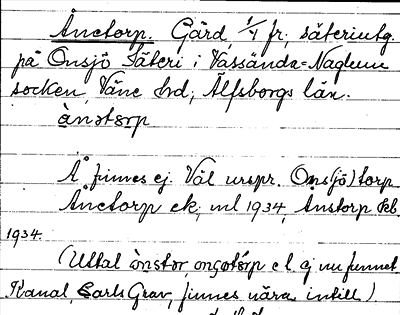 Ånetorp. Gård, 1/4 fr; säteriutg.
på Onsjö Säteri i Vassända-Naglum
socken, Väne hd; Älfsborgs län.
ànstȯrp
Å finnes ej. Väl urspr. Ons(jö)torp
Ånetorp ek; ml 1934, Anstorp
1934.
(Uttal ej nu funnet
Kanal, Carls Grav, finnes nära intill)